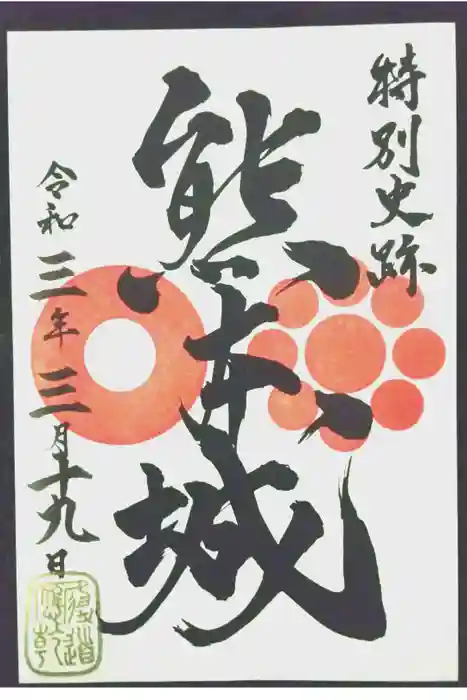 特別史跡
熊本城
令和三年三月十九日